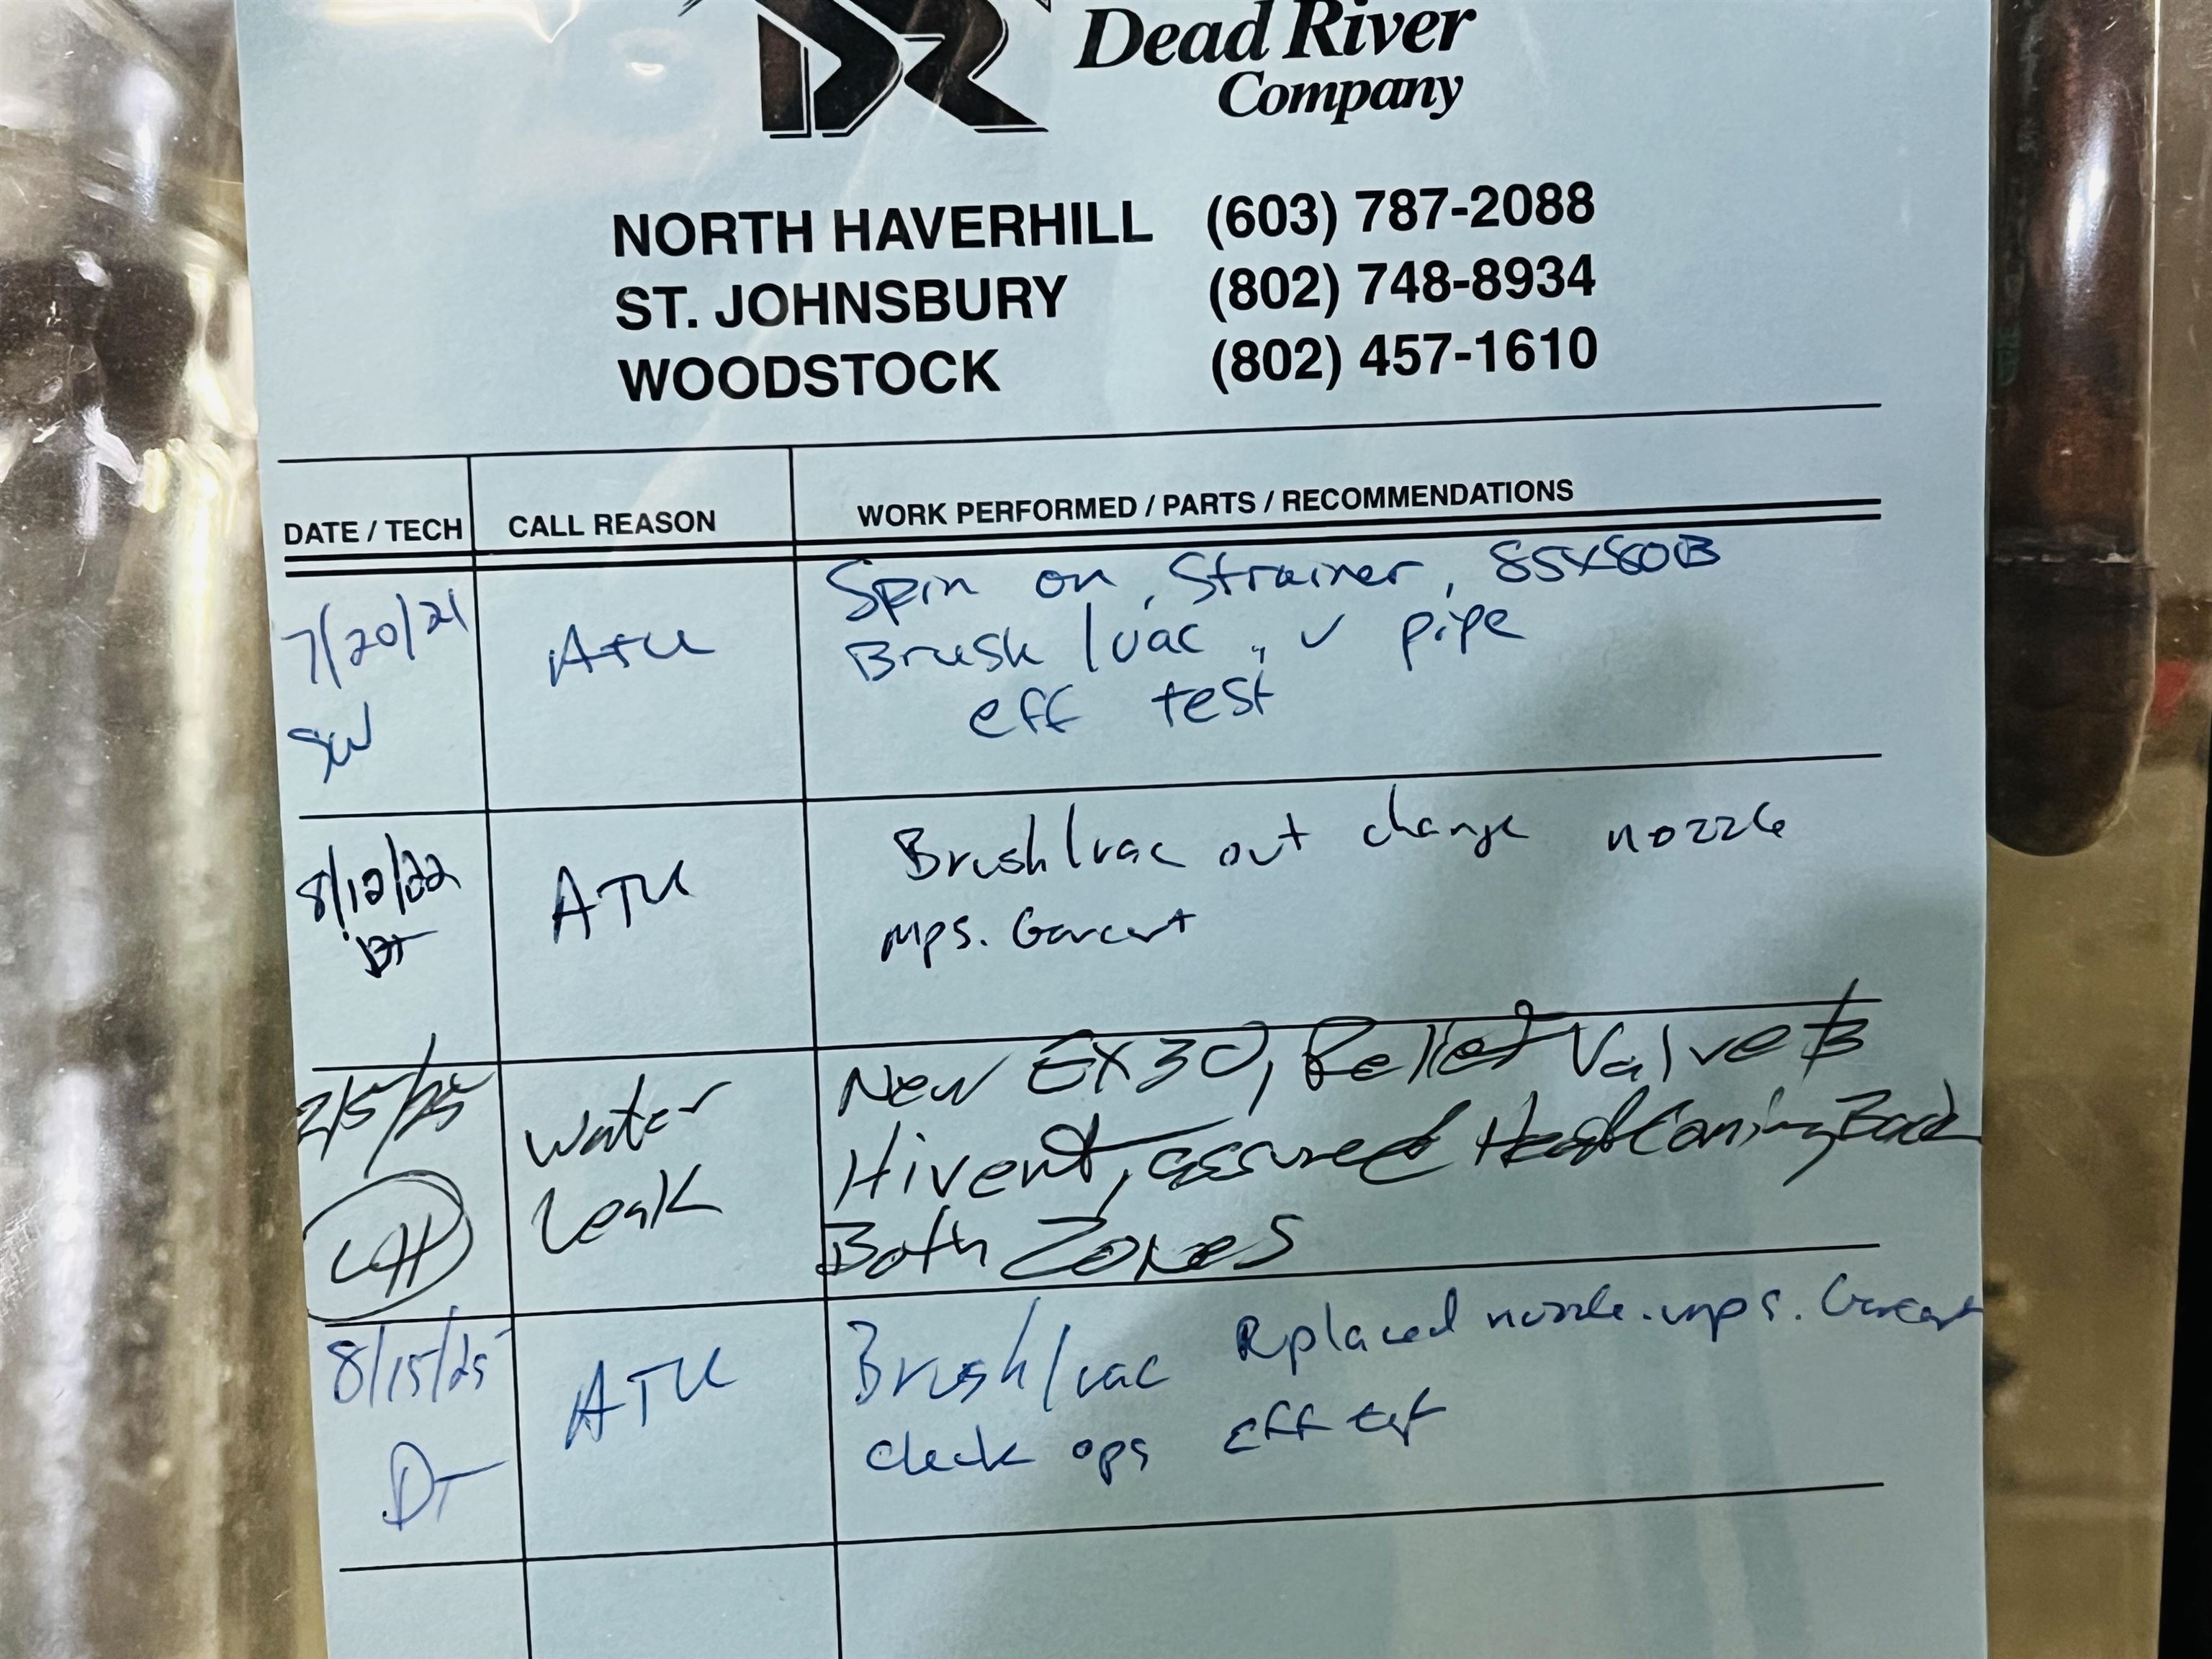 DR Dead River
Company
NORTH HAVERHILL (603) 787-2088
ST. JOHNSBURY (802) 748-8934
WOODSTOCK (802) 457-1610
DATE / TECH CALL REASON WORK PERFORMED / PARTS / RECOMMENDATIONS
7/20/21 ATU Spin on, Strainer, 85x80B
SW Brush/vac, ✓ pipe
eff test
8/12/22 ATU Brush/vac out change nozzle
DT mps. Garcart
2/5/25 Water New EX30, Relief Valve &
Leak Hivent, assured Heat Coming Back
Both Zones
8/15/25 ATU Brush/vac Rplaced nozzle. mps. Garcart
DT check ops eff test